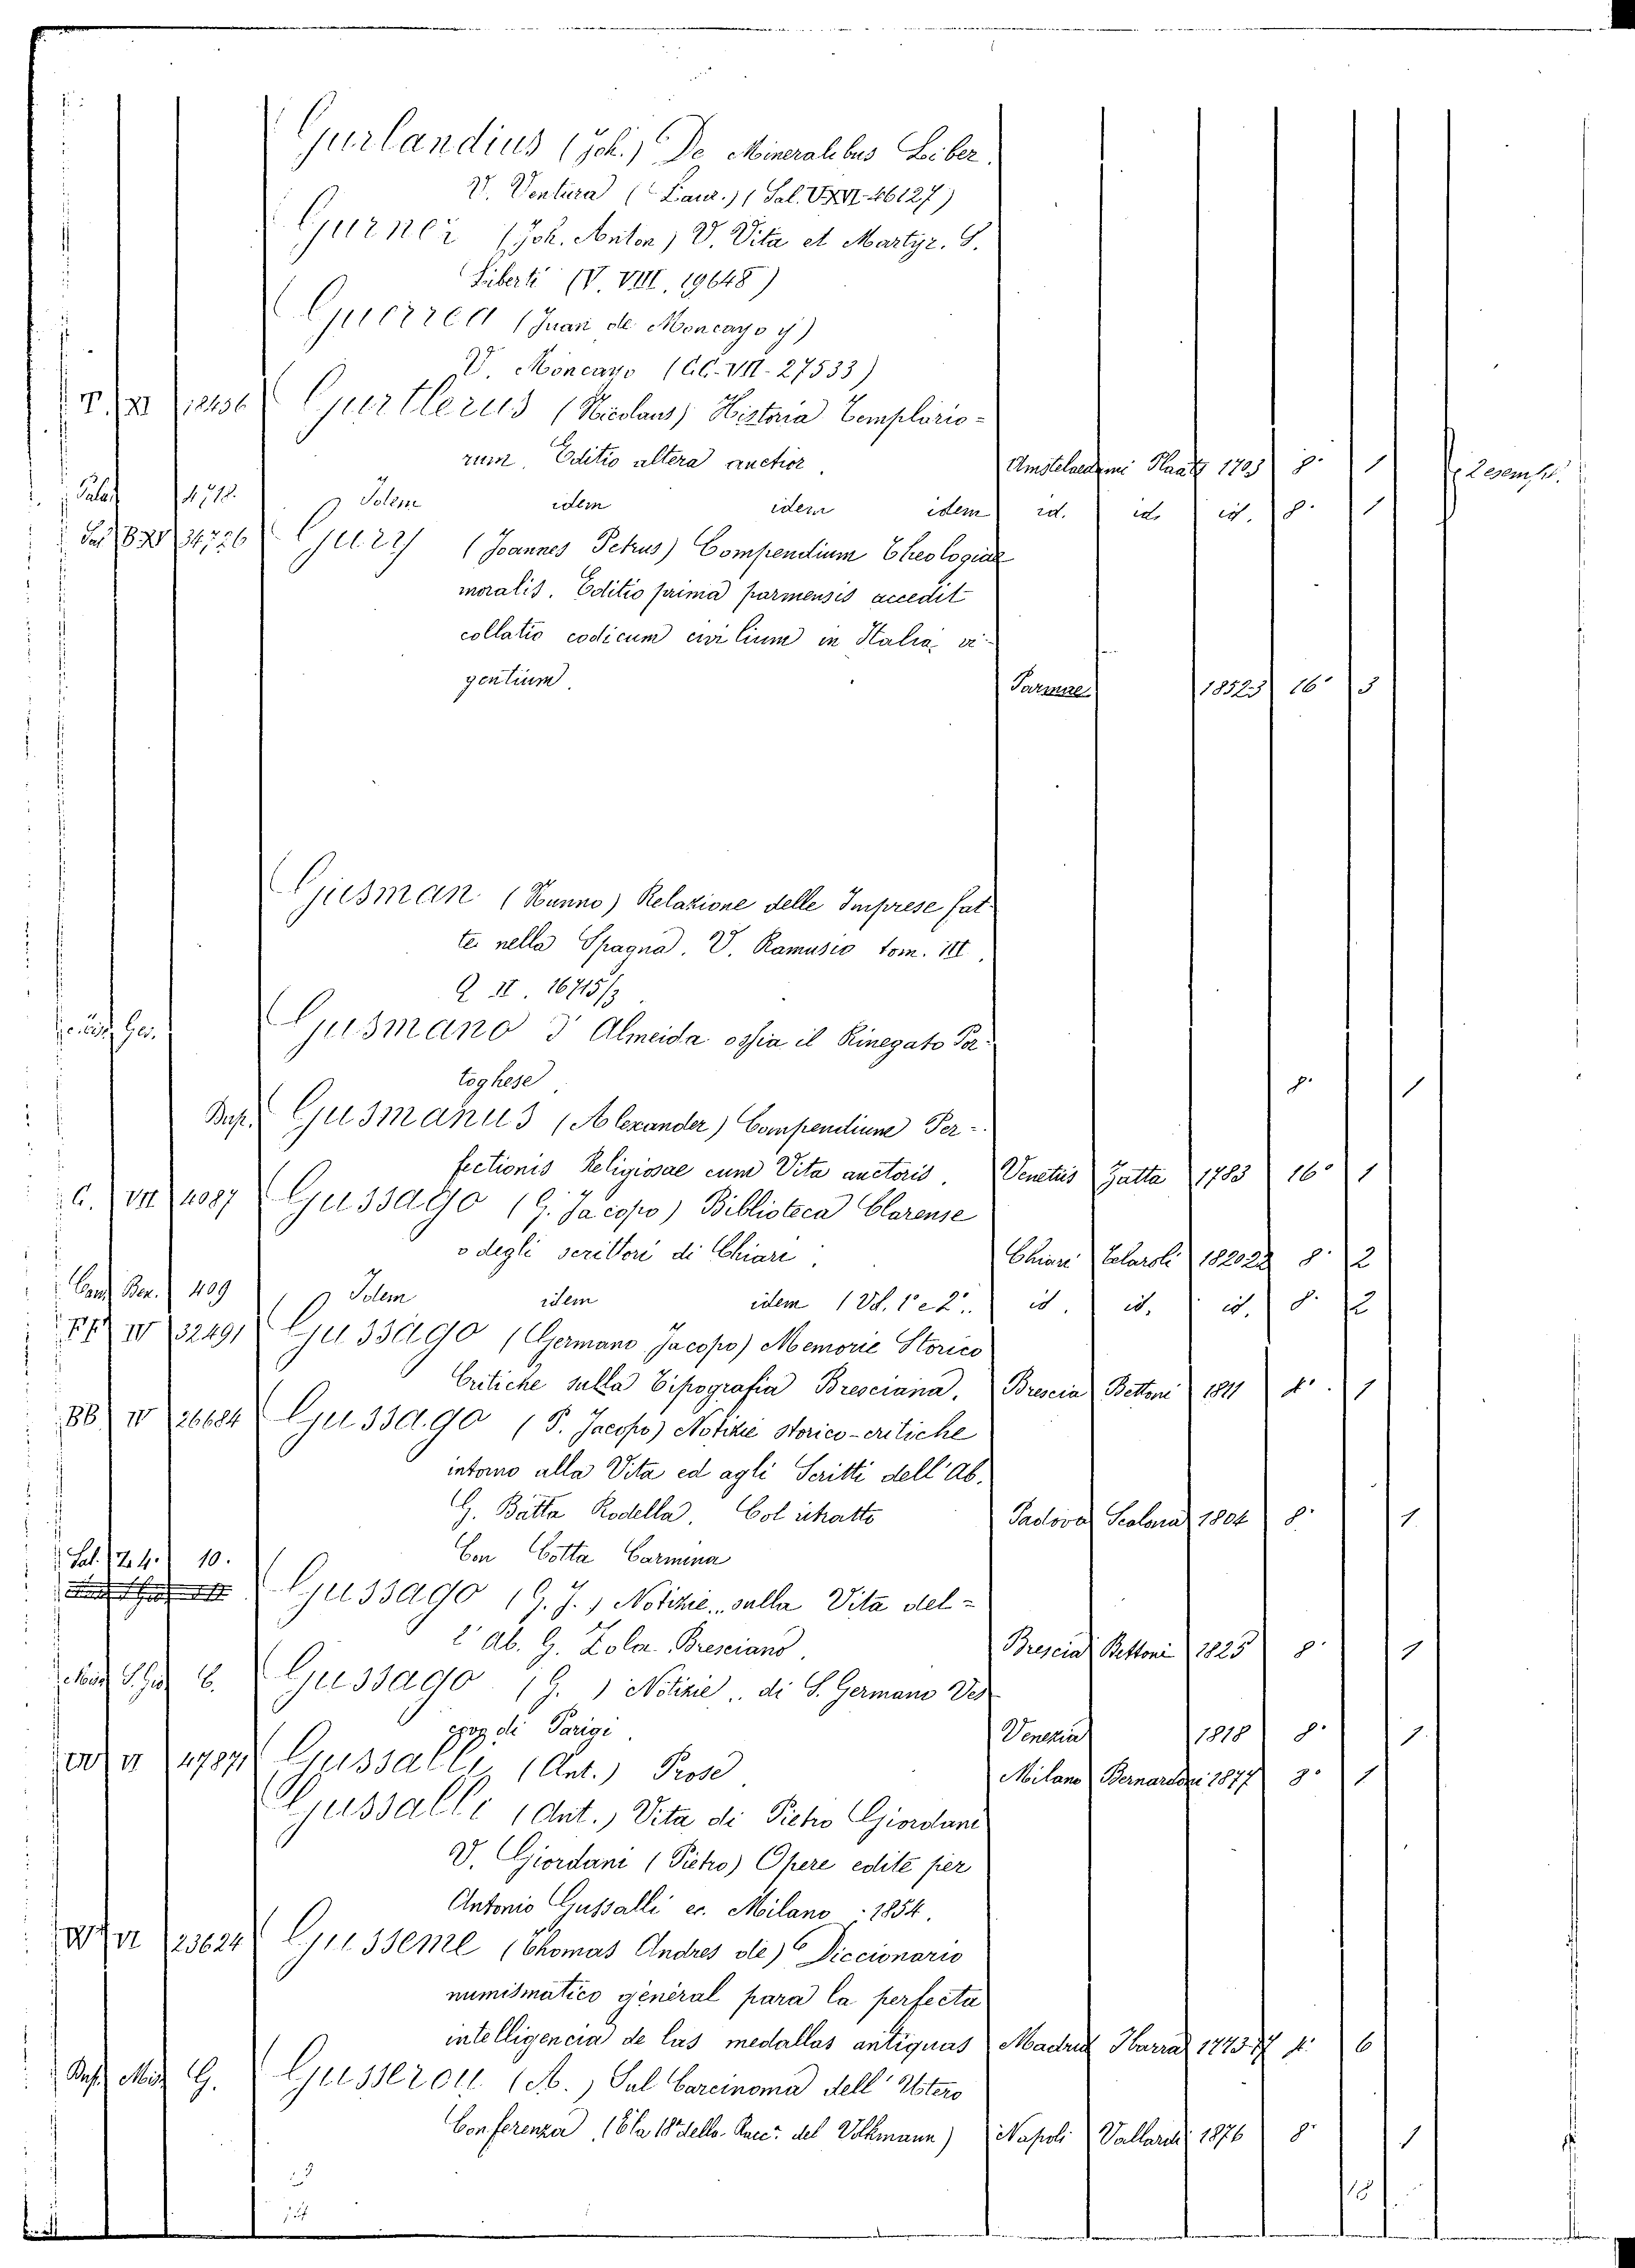 Gurlandius (Joh.) De Mineralibus Liber.
V. Ventura (Laur.) (Sal. VXVI 46127)
Gurner (Joh. Anton) V. Vita et Martyr. S.
Liberti (V. VIII. 19648)
Guerrea (Juan de Moncayo y)
V. Moncayo (CC. VII. 27533)
T. XI 12436 Gurtlerus (Nicolaus) Historia Templario-
rum. Editio altera auctior. Amstelaedami 1703 8° 1 2 esempl.
Palat 4712. Idem idem idem idem id. id. id. 8° 1
34726 Gury (Joannes Petrus) Compendium Theologiae
moralis. Editio prima parmensis accedit
collatio codicum civilium in Italia vi-
gentium. Parmae 1852-3 16° 3
Gusman (Nunno) Relazione delle Imprese fat-
te nella Spagna. V. Ramusio tom. III.
Q II. 16715/3
Gusmano d'Almeida ossia il Rinegato Por-
toghese 8° 1
Gusmanus (Alexander) Compendium Per-
fectionis Religiosae cum Vita auctoris. Venetiis Zatta 1783 16° 1
C. VII 4087 Gussago (G. Jacopo) Biblioteca Clarense
o degli scrittori di Chiari. Chiari Telaroli 1820-22 8° 2
409 Idem idem idem (Vol. 1° e 2°.. id. id. id. 8° 2
FF IV 32491 Gussago (Germano Jacopo) Memorie Storico
Critiche sulla Tipografia Bresciana. Brescia Bettoni 1811 4° 1
BB IV 26684 Gussago (P. Jacopo) Notizie storico-critiche
intorno alla Vita ed agli Scritti dell'Ab.
G. Batta Rodella. Col ritratto Padova 1804 8° 1
Sal. Z. 4. 10. Con Cotta Carmina
Gussago (G. J.) Notizie.. sulla Vita del-
l'Ab. G. Zola Bresciano. Brescia Bettoni 1825 8° 1
6. Gussago (G. ) Notizie.. di S. Germano Ves-
covo di Parigi. Venezia 1818 8° 1
14787 Gussalli (Ant.) Prose Milano Bernardoni 1877 8° 1
Gussalli (Ant.) Vita di Pietro Giordani
V. Giordani (Pietro) Opere edite per
Antonio Gussalli ec. Milano 1854.
VI 23624 Gusseme (Thomas Andres de) Diccionario
numismatico general para la perfecta
intelligencia de las medallas antiguas Madrid Ibarra 1773-77 4° 6
G. Gusserow (A.) Sul Carcinoma dell'Utero
Conferenza (E la 18ª della Racc. del Volkmann) Napoli Vallardi 1876 8° 1
18